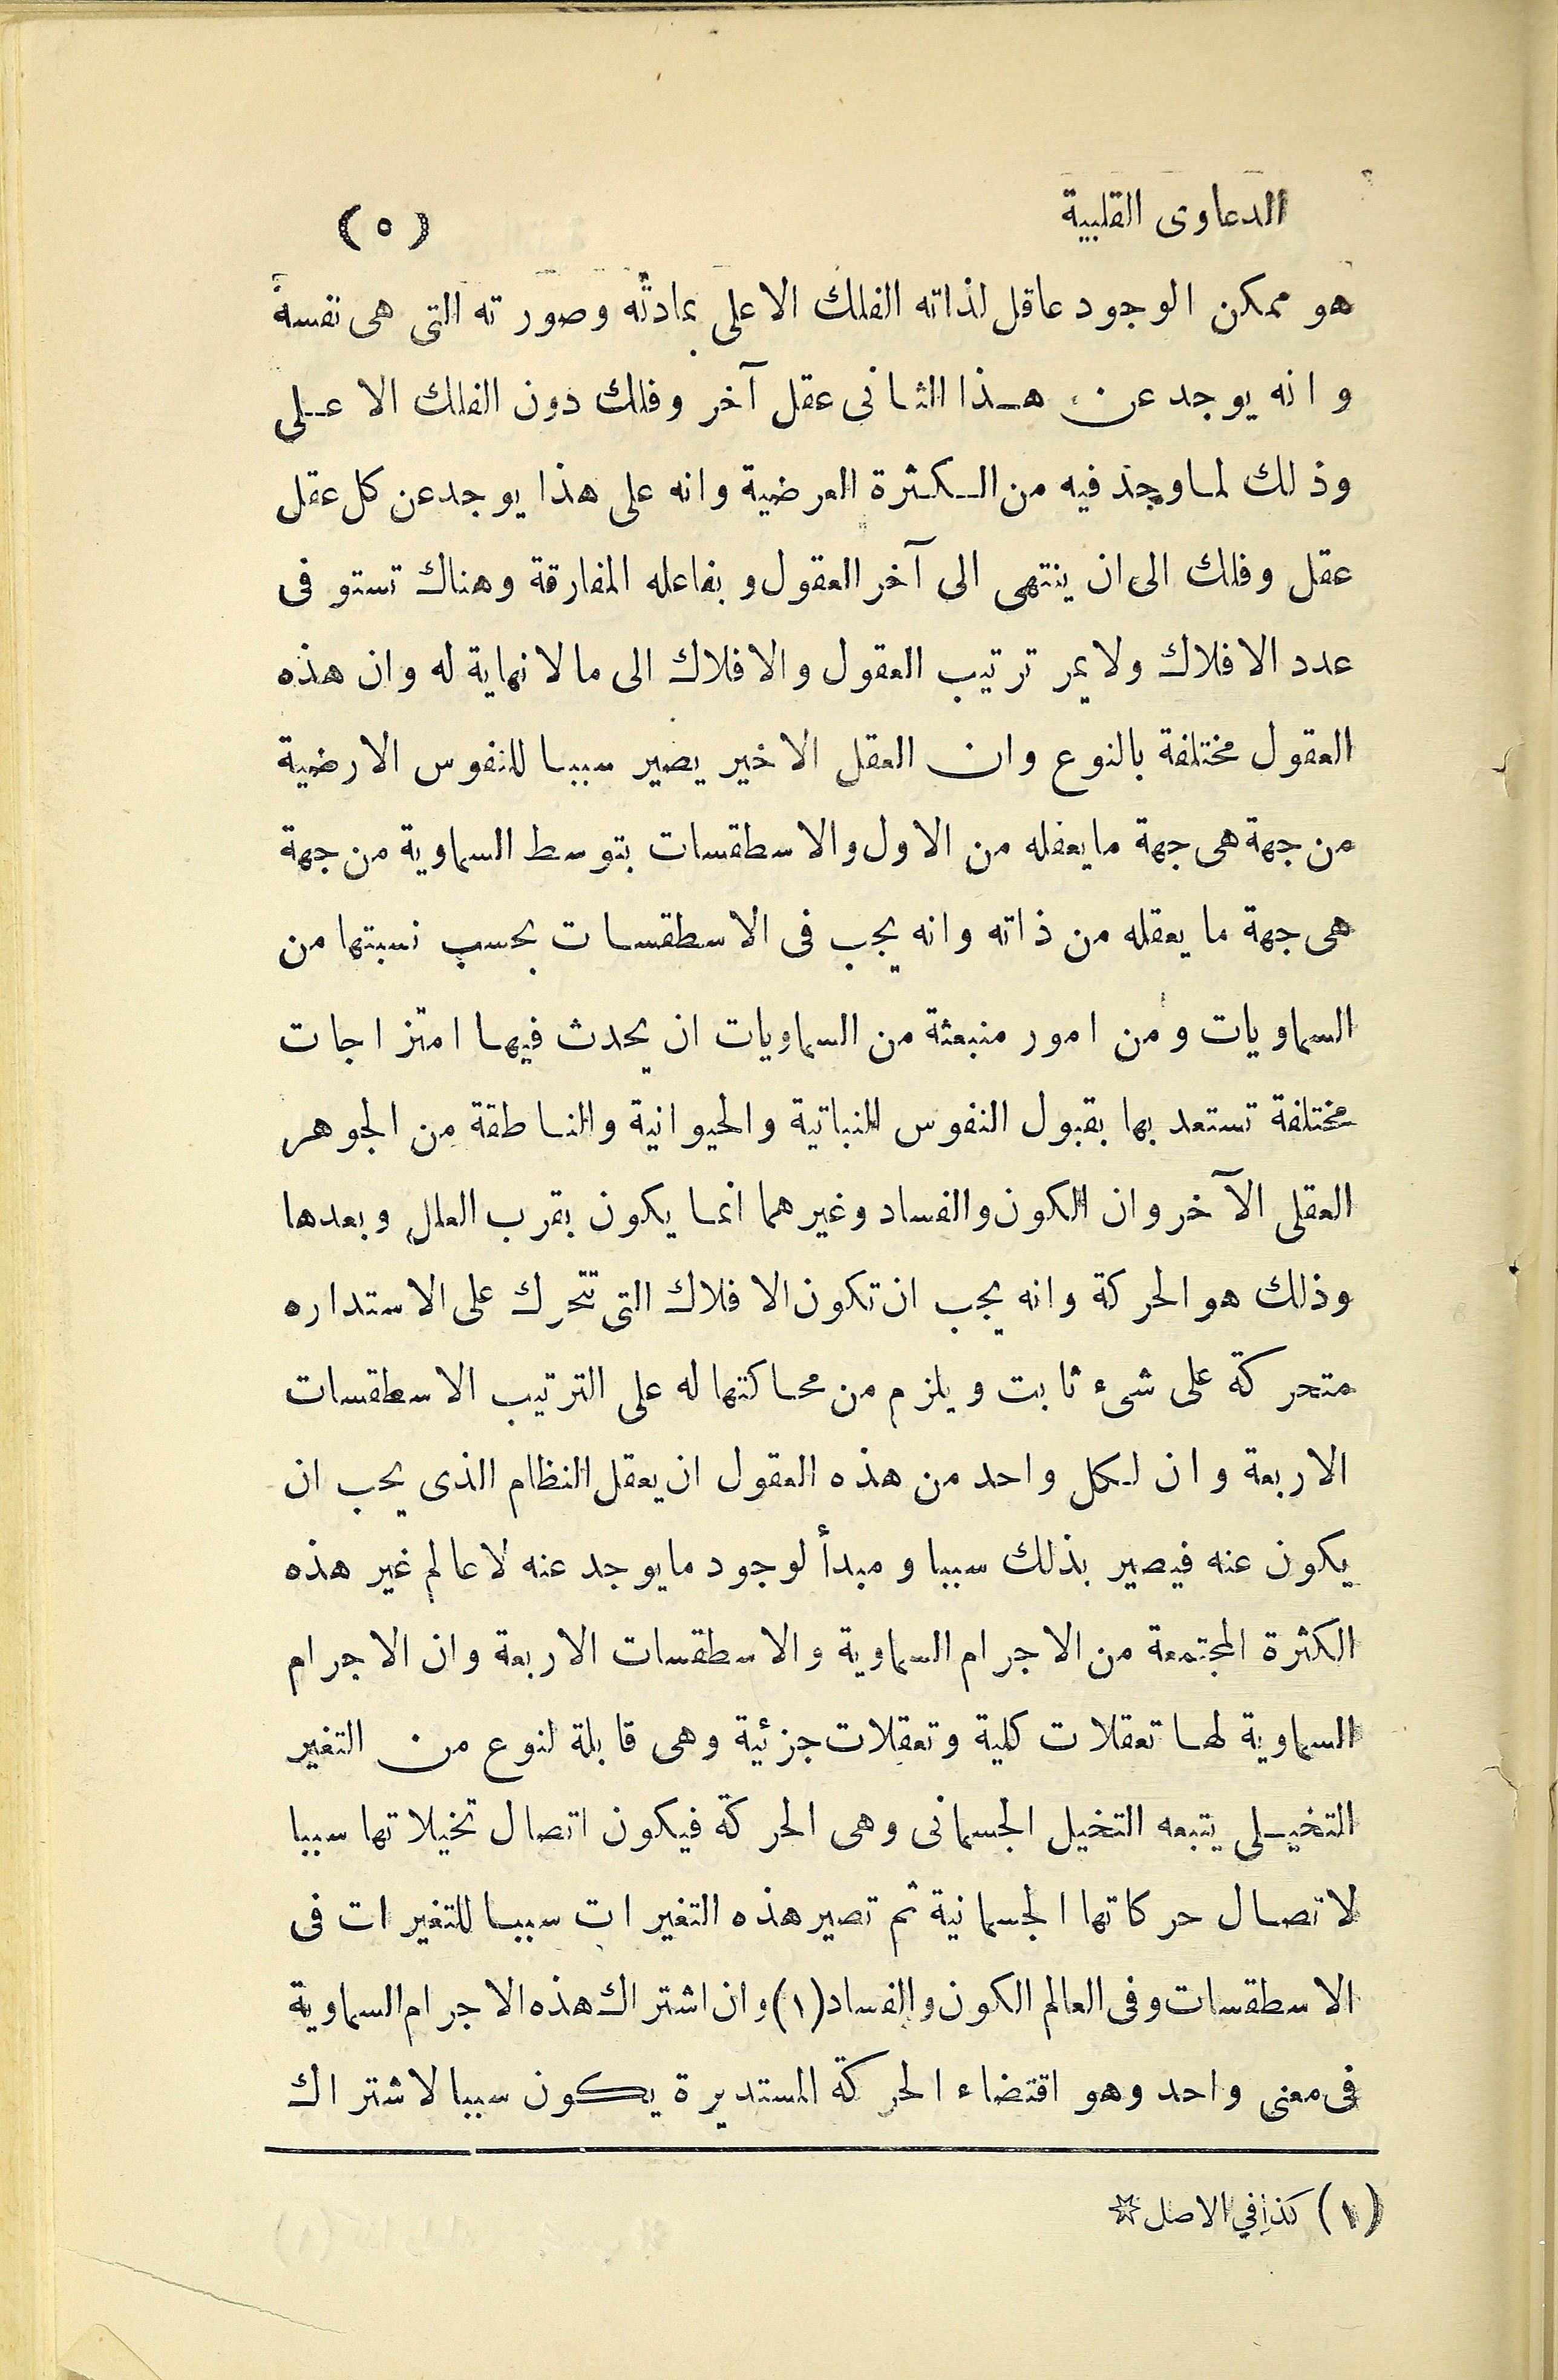 الدعاوى القلبية (٥)
هو ممكن الوجود عاقل لذاته الفلك الاعلى بمادته وصورته التى هى نفسه
وانه يوجد عن هذا الثانى عقل آخر وفلك دون الفلك الاعلى
وذلك لما وجد فيه من الكثرة العرضية وانه على هذا يوجد عن كل عقل
عقل وفلك الى ان ينتهى الى آخر العقول وبفاعله المفارقة وهناك تستوفى
عدد الافلاك ولا يمر ترتيب العقول والافلاك الى ما لا نهاية له وان هذه
العقول مختلفة بالنوع وان العقل الاخير يصير سببا للنفوس الارضية
من جهة هى جهة ما يعقله من الاول والاسطقسات بتوسط السماوية من جهة
هى جهة ما يعقله من ذاته وانه يجب فى الاسطقسات بحسب نسبتها من
السماويات ومن امور منبعثة من السماويات ان يحدث فيها امتزاجات
مختلفة تستعد بها بقبول النفوس النباتية والحيوانية والناطقة من الجوهر
العقلى الآخر وان الكون والفساد وغيرهما انما يكون بقرب العلل وبعدها
وذلك هو الحركة وانه يجب ان تكون الافلاك التى تتحرك على الاستداره
متحركة على شىء ثابت ويلزم من محاكتها له على الترتيب الاسطقسات
الاربعة وان لكل واحد من هذه العقول ان يعقل النظام الذى يحب ان
يكون عنه فيصير بذلك سببا ومبدأ لوجود ما يوجد عنه لا عالم غير هذه
الكثرة المجتمعة من الاجرام السماوية والاسطقسات الاربعة وان الاجرام
السماوية لها تعقلات كلية وتعقلات جزئية وهى قابلة لنوع من التغير
التخيلى يتبعه التخيل الجسمانى وهى الحركة فيكون اتصال تخيلاتها سببا
لاتصال حركاتها الجسمانية ثم تصير هذه التغيرات سببا للتغيرات فى
الاسطقسات وفى العالم الكون والفساد (١) وان اشتراك هذه الاجرام السماوية
فى معنى واحد وهو اقتضاء الحركة المستديرة يكون سببا لاشتراك
(١) كذا في الاصل ☆